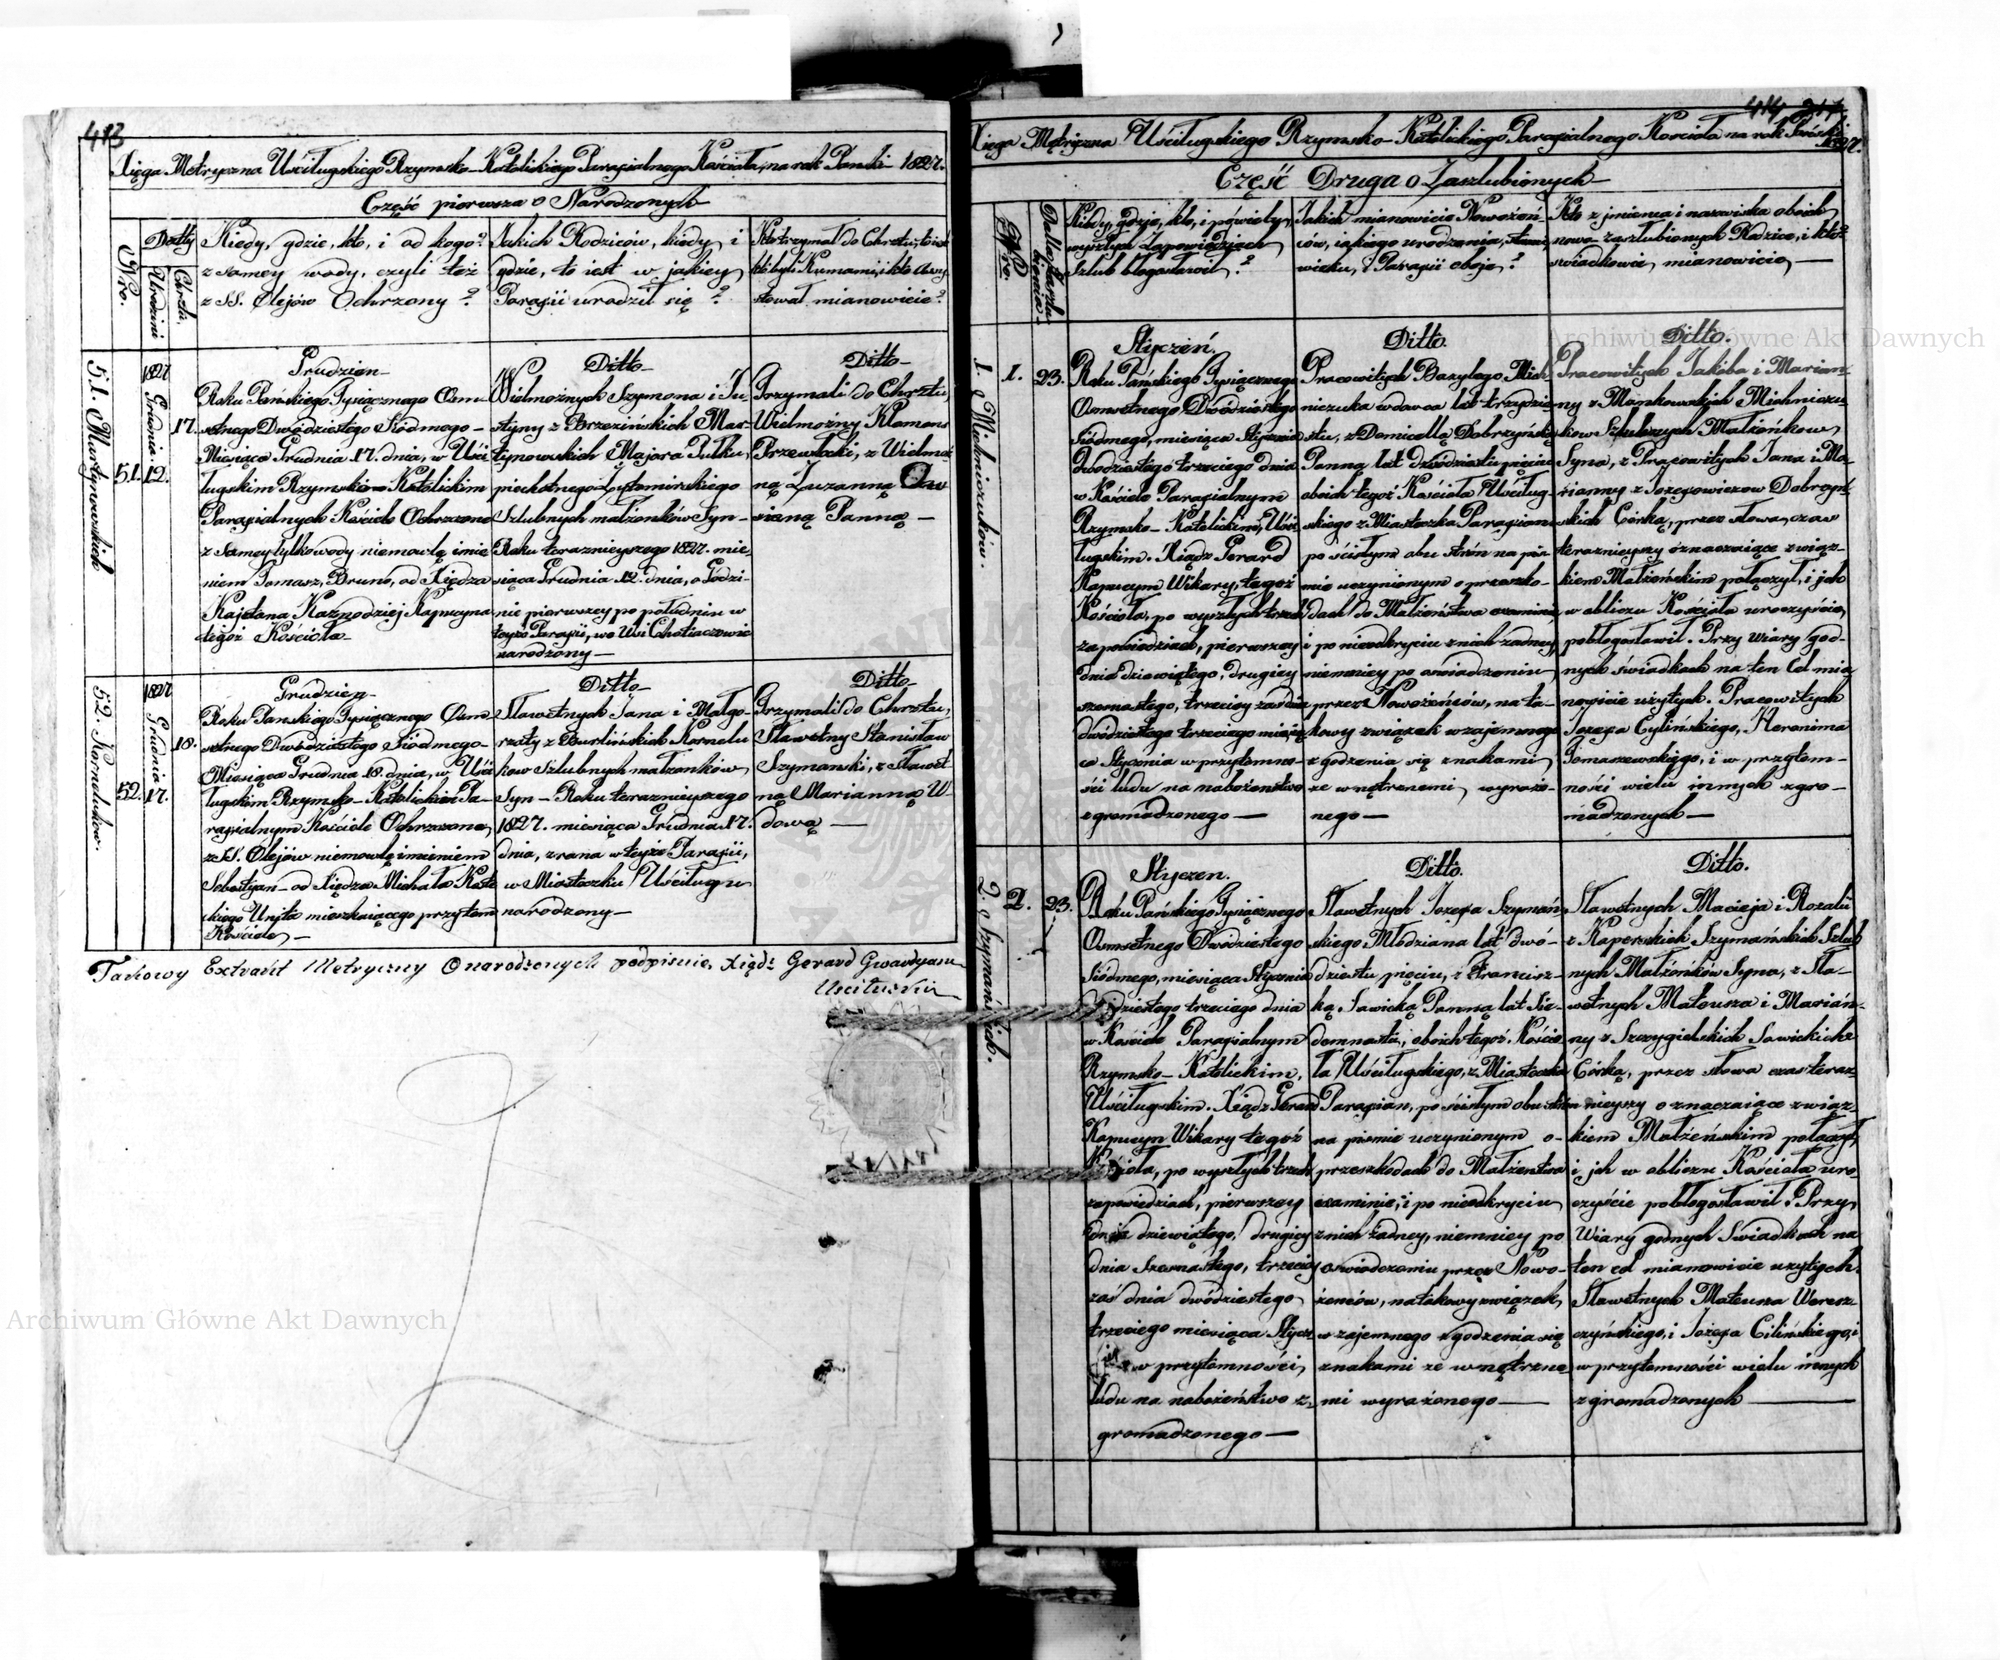 413
Xięga Metryczna Uściługskiego Rzymsko-Katolickiego Parafialnego Kościoła, na rok Panski 1827.
Część pierwsza o Narodzonych
Nro.
Datty
Urodzin
Chrztu.
Kiedy, gdzie, kto, i od kogo?
z samey wody, czyli też
z SS. Olejów Ochrzony?
Jakich Rodziców, kiedy i
gdzie, to iest w jakiey
Parafii urodził się?
Kto trzymał do Chrztu, to iest
kto byli Kumami, i kto assys
tował mianowicie?
51. Martynowskich
51.
1827
Grudnia
12.
17.
Grudzien
Roku Pańskiego Tysiącznego Osm-
setnego Dwódziestego Siódmego
Miesiąca Grudnia 17. dnia, w Uści
ługskim Rzymsko-Katolickim
Parafialnych Kościele Ochrzczono
z samey tylko wody niemowlę imie
niem Tomasz, Bruno, od Xiędza
Kajetana Kaznodziej Kapucyna
tegoż Kościoła
Ditto
Wielmożnych Szymona i Ju-
styny z Brzezińskich Mar-
tynowskich Majora Pułku
piechotnego Żytomirskiego
Szlubnych małżonków Syn
Roku terazniejszego 1827. mie
siąca Grudnia 12. dnia, o Godzi-
nie pierwszey po południu w
teyże Parafii, we Wsi Chotiaczowie
narodzony
Ditto
Trzymali do Chrztu,
Wielmożny Klemens
Przewłocki, z Wielmo
ną Zuzanną
Panną
52. Kornelukow.
52.
1827
Grudnia
17.
18.
Grudzien
Roku Panskiego Tysiącznego Osm
setnego Dwódziestego Siódmego
Miesiąca Grudnia 18. dnia, w Uści
ługskim Rzymsko-Katolickim Pa-
rafialnym Kościele Ochrzczono,
z SS. Olejów niemowlę imieniem
Sebastyan od Xiędza Michała
Unjta mieszkaiącego przytem
Kościele
Ditto
Sławetnych Jana i Małgo-
rzaty z Burlińskich Kornelu
kow Szlubnych małzonków
Syn Roku terazniejszego
1827. miesiąca Grudnia 17.
dnia, z rana w teyże Parafii,
w Miasteczku Uściługu
narodzony
Ditto
Trzymali do Chrztu,
Sławetny Stanisław
Szymanski, z Sławet
ną Marianną W
dową
Takowy Extrakt Metryczny O narodzonych podpisuie, Xiądz Gerard Gwardyan
Uściłuski
414 217
Xięga Metryczna Uściługskiego Rzymsko-Katolickiego Parafialnego Kościoła na rok Pański
1827.
Część Druga o Zaszlubionych
Nro.
Kiedy, gdzie, kto, i po wielu
wyszłych Zapowiedziach
Szlub błogosławił?
Jakich mianowicie Nowożeń-
ców, iakiego urodzenia, stanu
wieku, i Parafii oboje?
Kto z jmienia i nazwiska oboich
nowo-zaszlubionych Rodzice, i kto
swiadkowie mianowicie
1. Michniczuków.
1.
23.
Styczeń.
Roku Pańskiego Tysiącznego
Osmsetnego Dwódziestego
Siódmego, miesiąca Stycznia
dwódziestego trzeciego dnia
w Kościele Parafialnym
Rzymsko-Katolickim, Uści
ługskim. Xiądz Gerard
Kapucyn Wikary, tegoż
Kościoła, po wyszłych trzech
zapowiedziach, pierwszey
dnia dziewiątego, drugiey
szesnastego, trzeciey zaś dnia
dwódziestego trzeciego miesią
ca Stycznia w przytomno-
ści ludu na nabożenstwo
zgromadzonego
Ditto.
Pracowitych Bazylego Mich
niczuka wdowca lat trzydzie
stu, z Domicellą Dobrzyńską
Panną lat dwódziestu pięciu
oboich tegoż Kościoła Uściług-
skiego z Miasteczka Parafian
po ścisłym obu strón na piś-
mie uczynionym o przeszko-
dach do Małżeństwa examinie,
i po nieodkryciu z nich żadney
niemniey po oswiadczeniu
przez Nowożeńców, na ta-
kowy związek wzajemnego
zgodzenia się znakami
zewnętrznemi, wyrażo-
nego
Ditto.
Pracowitych Jakóba i Marian
ny z Mankowskich Michniczu-
kow Szlubnych Małżonkow
Syna, z Pracowitych Jana i Ma-
rianny z Jozefowiczow Dobrzyń
skich Córką, przez słowa, czas
terazniejszy oznaczaiące związ-
kiem Małżeńskim połączył, i jch
w obliczu Kościoła uroczyście,
pobłogosławił. Przy wiary god-
nych świadkach na ten cel mia
nowicie użytych. Pracowitych
Jozefa Cylińskiego, Heronima
Tomaszewskiego, i w przytom-
ności wielu innych zgro-
madzonych
2. Szymańskich.
2.
23.
Styczen.
Roku Pańskiego Tysiącznego
Osmsetnego Dwódziestego
Siódmego, miesiąca Stycznia
dziestego trzeciego dnia
w Kościele Parafialnym
Rzymsko-Katolickim,
Uściługskim. Xiądz Gerard
Kapucyn Wikary tegoż
Kościoła, po wyszłych trzech
zapowiedziach, pierwszey
dnia dziewiątego, drugiey
dnia szesnastego, trzeciey
zaś dnia dwódziestego
trzeciego miesiąca Stycz-
w przytomności
ludu na nabożeństwo z-
gromadzonego
Ditto.
Sławetnych Jozefa Szymań
skiego Młodziana lat dwó-
dziestu pięciu, z Francisz-
ką Sawicką Panną lat Sie-
demnastu, oboich tegoż Kościo
ła Uściługskiego, z Miasteczka
Parafian, po ścisłym obu strón
na pismie uczynionym o-
przeszkodach do Małżenstwa
examinie, i po nieodkryciu
z nich żadney, niemniey po
oswiadczeniu przez Nowo-
żenców, na takowy związek,
wzajemnego zgodzenia się
znakami zewnętrzne
mi wyrażonego
Ditto.
Sławetnych Macieja i Rozalii
z Kaperskich Szymańskich Szlub
nych Małżónków Syna, z Sła-
wetnych Mateusza i Marian-
ny z Szczygielskich Sawickich
Córką, przez słowa czas teraz-
nieyszy oznaczaiące związ-
kiem Małżeńskim połączył,
i jch w obliczu Kościoła uro-
czyście pobłogosławił. Przy
Wiary godnych Swiadkach na
ten cel mianowicie użytych.
Sławetnych Mateusza Weresz
czyńskiego, i Jozefa Cilińskiego, i
w przytomności wielu innych
zgromadzonych
Archiwum Główne Akt Dawnych
Archiwum Główne Akt Dawnych